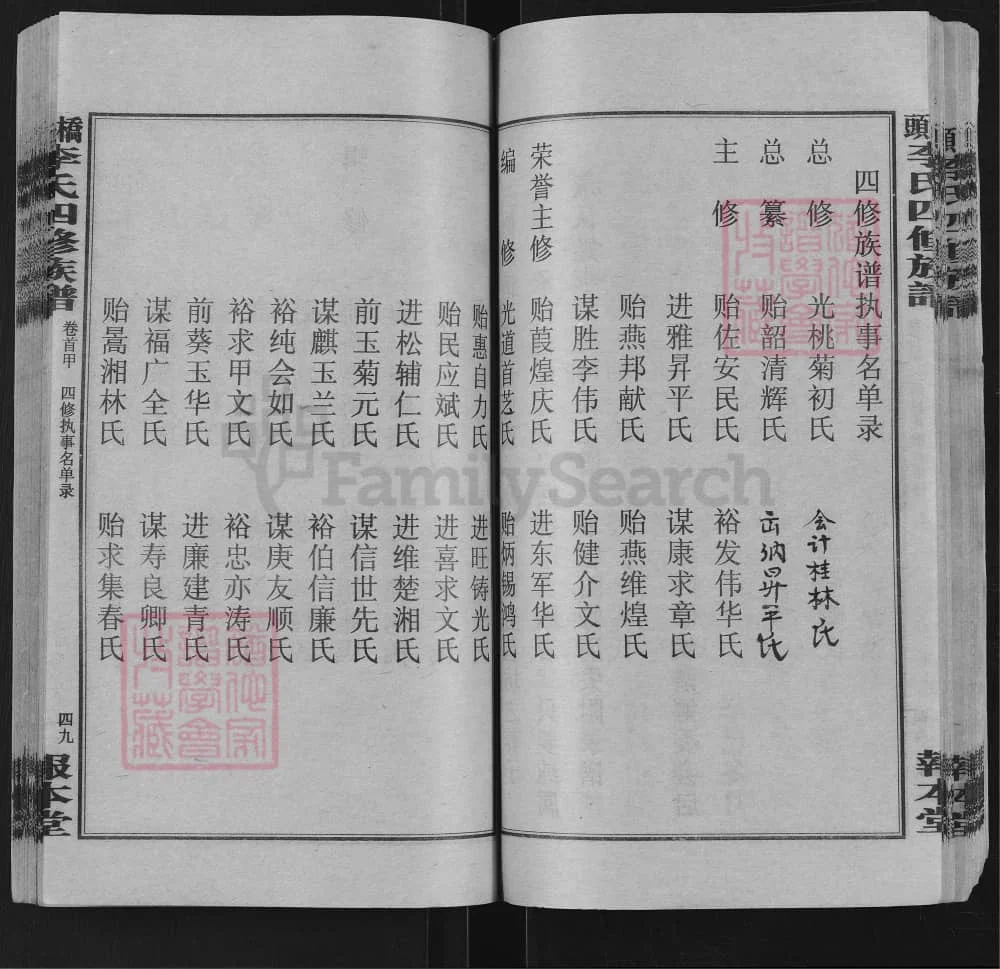 四修族谱执事名单录
总修 光桃菊初氏 会计桂林氏
总纂 贻韶清辉氏 出纳昇平氏
主修 贻佐安民氏 裕发伟华氏
进雅昇平氏 谋康求章氏
贻燕邦献氏 贻燕维煌氏
谋胜李伟氏 贻健介文氏
荣誉主修 贻葭煌庆氏 进东军华氏
编修 光道首芝氏 贻炳锡鸿氏
贻惠自力氏 进旺铸光氏
贻民应斌氏 进喜求文氏
进松辅仁氏 进维楚湘氏
前玉菊元氏 谋信世先氏
谋麒玉兰氏 裕伯信廉氏
裕纯会如氏 谋庚友顺氏
裕求甲文氏 裕忠亦涛氏
前葵玉华氏 进廉建青氏
谋福广全氏 谋寿良卿氏
贻暠湘林氏 贻求集春氏
橋李氏四修族譜
卷首甲 四修执事名单录
四九
報本堂
頭李氏四修族譜
報本堂
FamilySearch